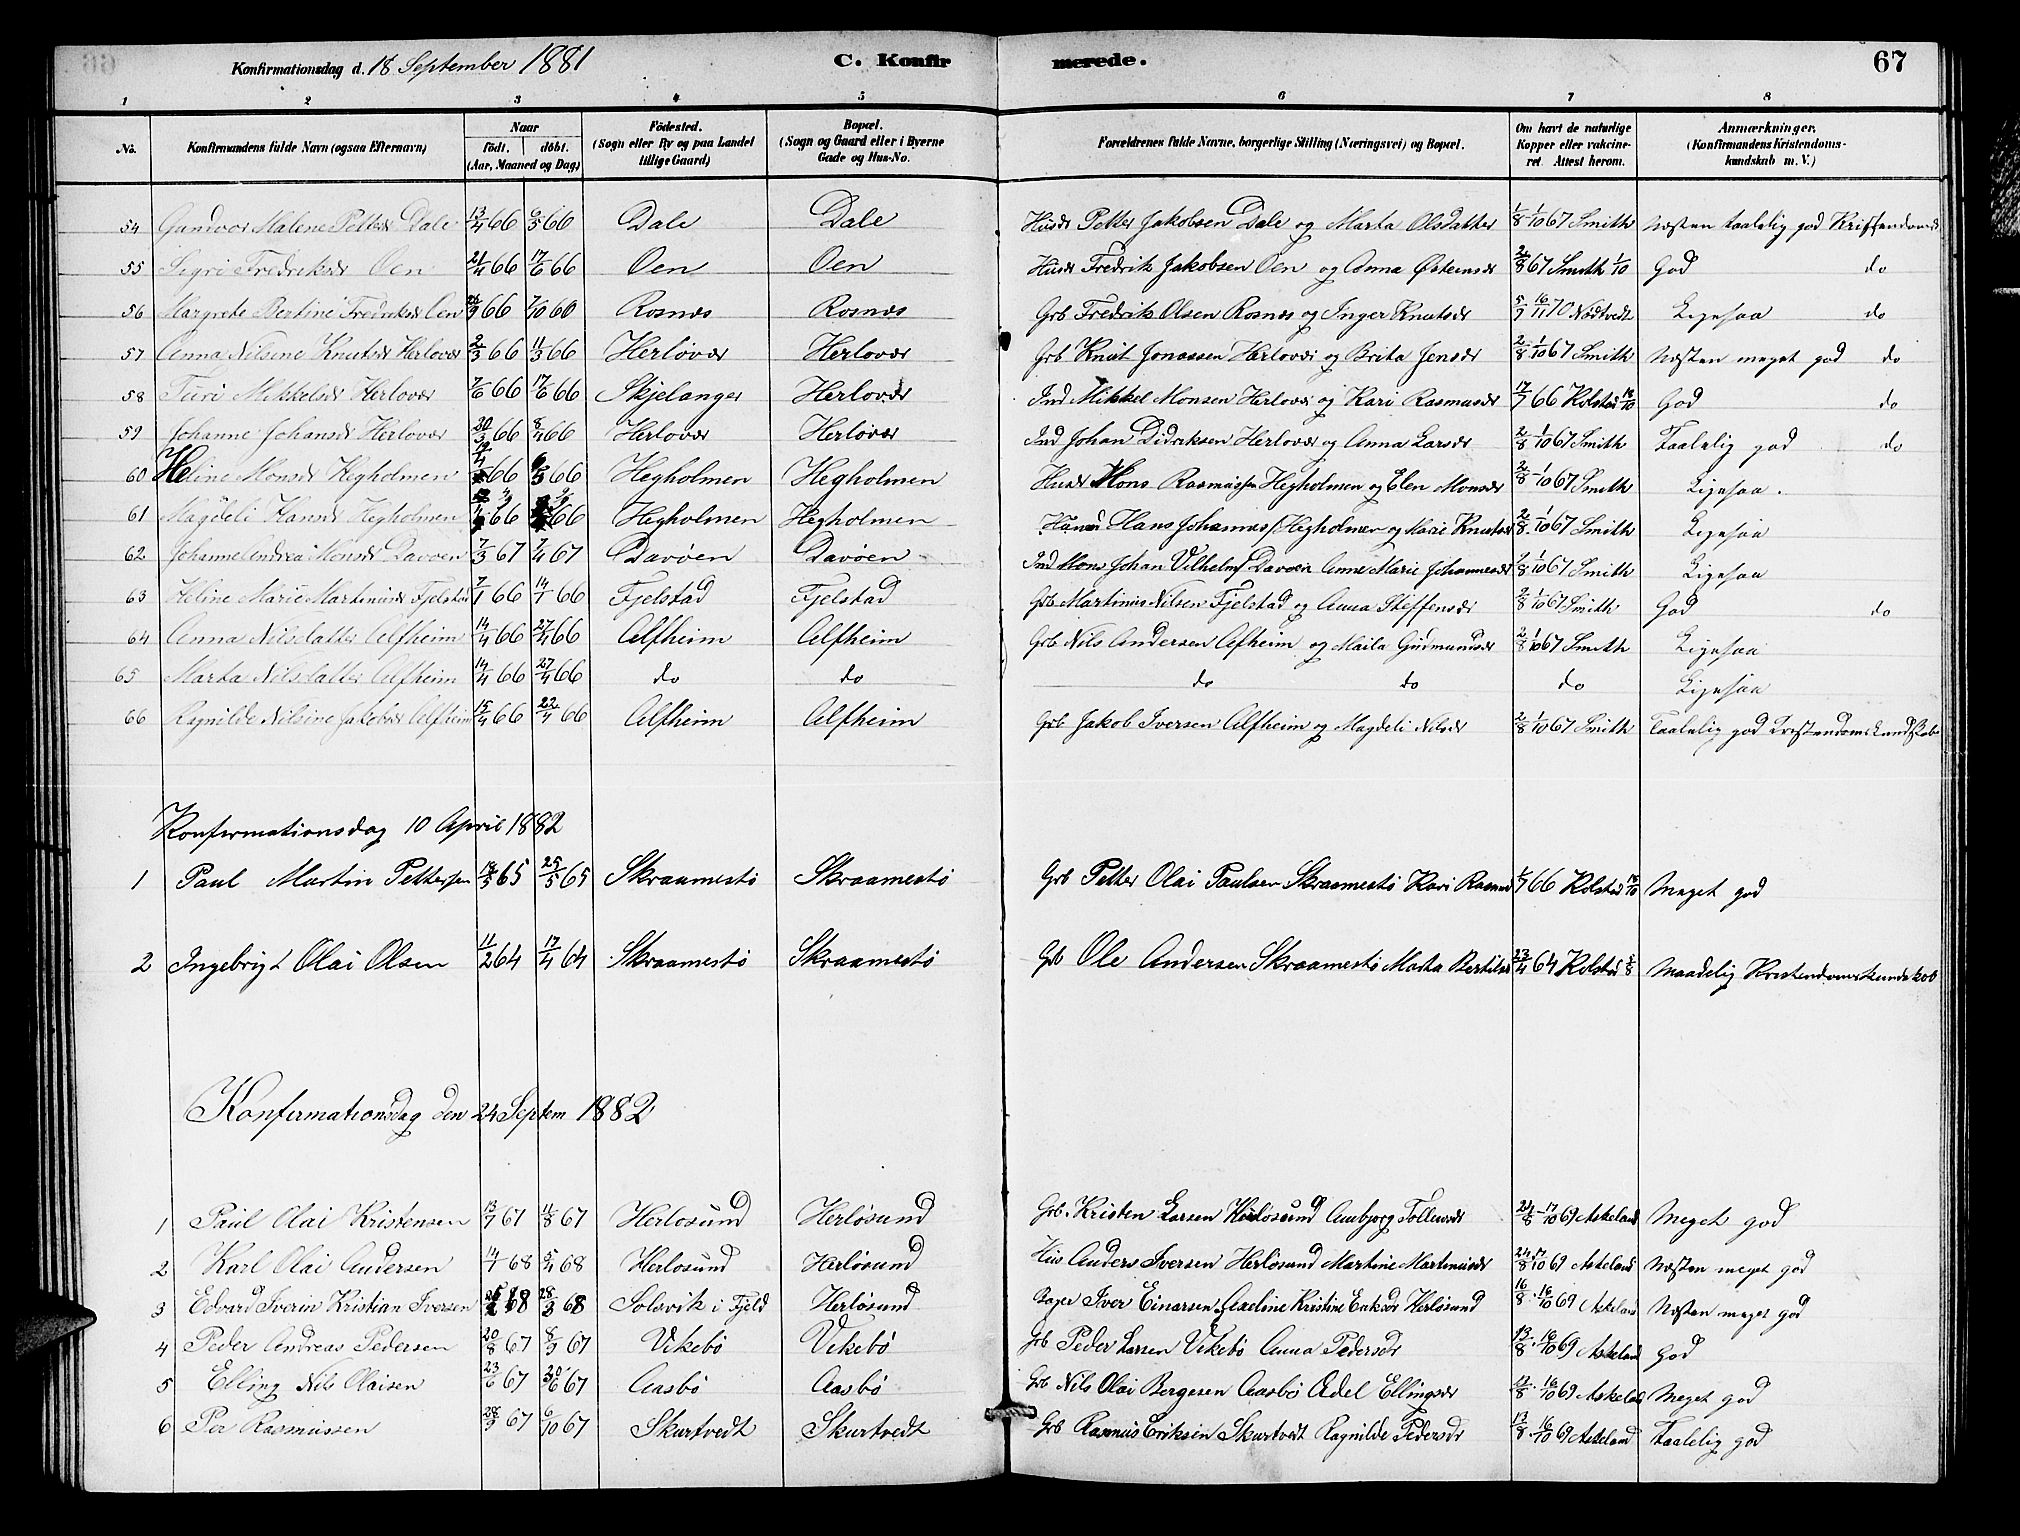 Konfirmationsdag d. 18 September 1881 C. Konfirmerede. 67
1 2 3 4 5 6 7 8
No. Konfirmandens fulde Navn (ogsaa Efternavn) Naar födt. döbt. (Aar, Maaned og Dag) Födested. (Sogn eller By og paa Landet tillige Gaard) Bopæl. (Sogn og Gaard eller i Byerne Gade og Hus-No. Forældrenes fulde Navne, borgerlige Stilling (Næringsvei) og Bopæl. Om havt de naturlige Kopper eller vakcineret. Attest herom. Anmærkninger. (Konfirmandens Kristendomskundskab m. V.)
54 Gundvor Malene Pettersdr Dale 13/4 66 6/5 66 Dale Dale Husdr Petter Jakobsen Dale og Marta Olsdatter 1/8 1/10 67 Smith Næsten taalelig god
55 Sigri Fredriksdr Oen 21/4 66 17/6 66 Oen Oen Husdr Fredrik Jakobsen Oen og Anna Østensdr 2/8 67 Smith 1/10 God do
56 Margrete Bertine Fredriksdr Oen 26/9 66 7/10 60 Rosnæs Rosnæs Grb Fredrik Olsen Rosnæs og Inger Knutsdr 5/7 16/11 70 Nödtvedt Ligesaa do
57 Anna Nilsine Knutsdr Herlovær 2/3 66 11/3 66 Herlövær Herlovær Grb Knut Jonassen Herlovær og Brita Jensdr 2/8 1/10 67 Smith Næsten meget god do
58 Turi Mikkelsdr Herlovær 7/6 66 17/6 66 Skjelanger Herlovær Ind Mikkel Monsen Herlovær og Kari Rasmusdr 17/7 66 Kolstad 18/10 God do
59 Johanne Johansdr Herlovær 20/3 66 8/4 66 Herlovær Herlövær Ind Johan Didriksen Herlovær og Anna Larsdr 2/8 1/10 67 Smith Taalelig god do
60 Heline Monsdr Hegholmen 19/4 66 6/5 66 Hegholmen Hegholmen Husdr Mons Rasmussen Hegholmen og Elen Monsdr 2/8 - 1/10 67 Smith Ligesaa.
61 Magdeli Hansdr Hegholmen 66 66 Hegholmen Hegholmen Hans Johannes Hegholmen og Marie Knutsdr 2/8 1/10 67 Smith Ligesaa
62 Johanne Andrea Monsdr Davøen 7/3 67 7/4 67 Davøen Davøen Ind Mons Johan Vilhelm Davøen Anne Marie Johannesdr 2/8 1/10 67 Smith Ligesaa
63 Heline Marie Martinusdr Fjelstad 7/1 66 14/1 66 Fjelstad Fjelstad Grb Martinus Nilsen Fjelstad og Anna Steffensdr 2/8 1/10 67 Smith God do
64 Anna Nilsdatter Alfheim 14/4 66 27/4 66 Alfheim Alfheim Grb Nils Andersen Afheim og Maila Gudmundsdr 2/8 1/10 67 Smith Ligesaa
65 Marta Nilsdatter Alfheim 14/4 66 27/4 66 do do do do do Ligesaa
66 Ragnilde Nilsine Jakobsdr Alfheim 15/4 66 22/4 66 Alfheim Alfheim Grb Jakob Iversen Alfheim og Magdeli Nilsdr 2/8 1/10 67 Smith Taalelig god
Konfirmationsdag 10 April 1882
1 Paul Martin Pettersen 65 25/5 65 Skraamestö Skraamestö Grb Petter Olai Paulsen Skraamestö Kari 66 Kolstad 18/10 Meget god
2 Ingebrigt Olai Olsen 11/2 64 17/4 64 Skraamestö Skraamestö Grb Ole Andersen Skraamestö Marta 23/4 64 Kolstad Maadelig Kristendomskundskab
Konfirmationsdag den 24 Septem 1882
1 Paul Olai Kristensen 13/7 67 11/8 67 Herlosund Herlösund Grb. Kristen Larsen Herlösund Anbjorg 24/8 - 17/10 69 Askeland Meget god
2 Karl Olai Andersen 14/1 68 5/4 68 Herlosund Herlösund Hus Anders Iversen Herlösund Martine Martinusdr 24/8 17/10 69 Askeland Næsten meget god
3 Edvard Iverin Kristian Iversen 68 28/3 68 Solsvik i Fjeld Herlösund Iver Einarsen Kristine Eriksdr Herlösund 16/8 - 16/10 69 Askeland Næsten meget god
4 Peder Andreas Pedersen 20/8 67 8/9 67 Vikebö Vikebö Grb Peder Larsen Vikebö Anna Pedersdr 13/8 - 16/10 69 Askeland God
5 Elling Nils Olaisen 23/6 67 30/6 67 Aasbö Aasbö Grb Nils Olai Bergesen Aasbö Adel Ellingsdr 13/8 - 16/10 69 Askeland Meget god
6 Per Rasmussen 28/9 67 6/10 67 Skurtvedt Skurtvedt Grb Rasmus Eriksen Skurtvedt Ragnilde Pedersdr 13/8 - 16/10 69 Askeland Taalelig god